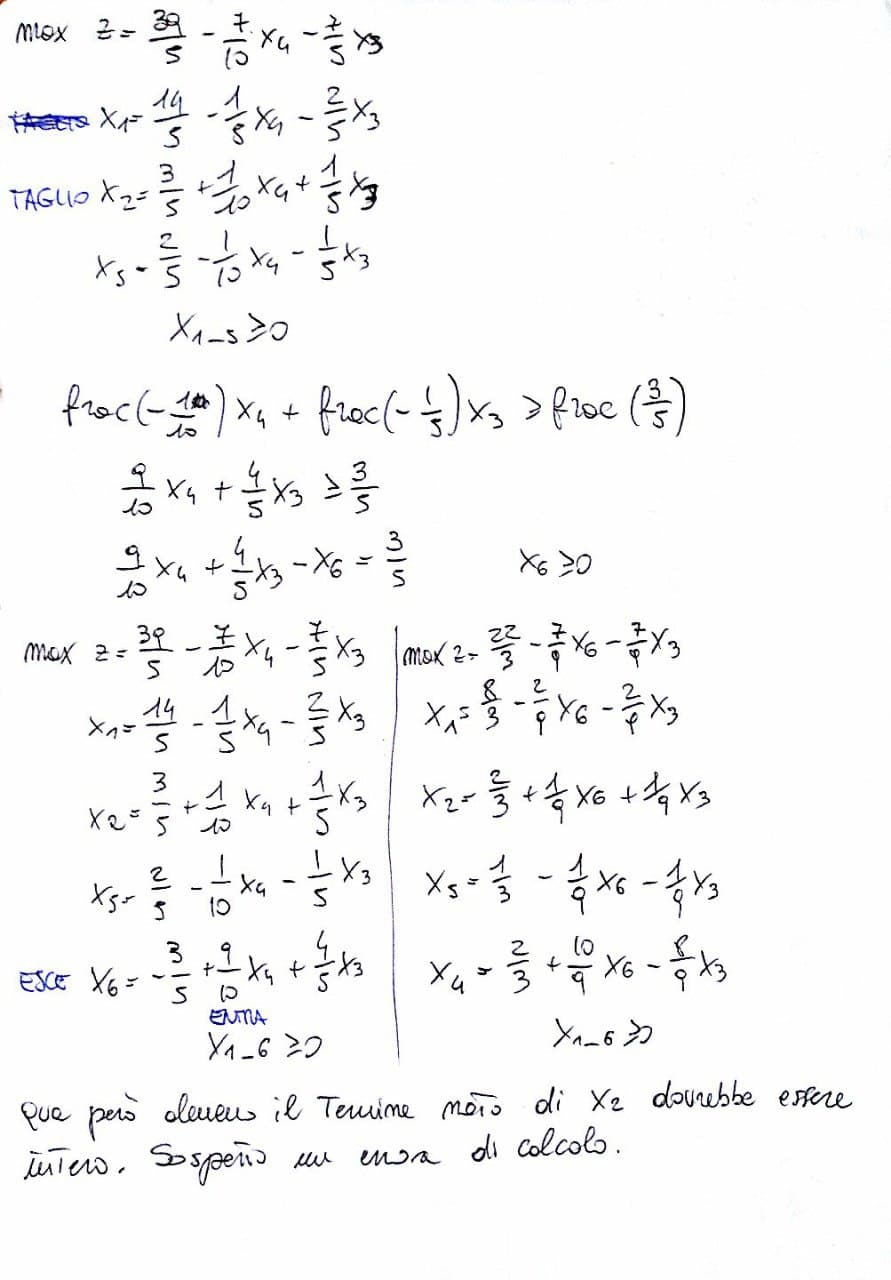 max z = 39/5 - 7/10 x4 - 7/5 x3
x1 = 14/5 - 1/5 x4 - 2/5 x3
TAGLIO x2 = 3/5 + 1/10 x4 + 1/5 x3
x5 = 2/5 - 1/10 x4 - 1/5 x3
x1-5 ≥ 0
frac(-1/10) x4 + frac(-1/5) x3 ≥ frac(3/5)
9/10 x4 + 4/5 x3 ≥ 3/5
9/10 x4 + 4/5 x3 - x6 = 3/5 x6 ≥ 0
max z = 39/5 - 7/10 x4 - 7/5 x3
x1 = 14/5 - 1/5 x4 - 2/5 x3
x2 = 3/5 + 1/10 x4 + 1/5 x3
x5 = 2/5 - 1/10 x4 - 1/5 x3
ESCE x6 = -3/5 + 9/10 x4 + 4/5 x3
ENTRA
x1-6 ≥ 0
max z = 22/3 - 7/9 x6 - 7/9 x3
x1 = 8/3 - 2/9 x6 - 2/9 x3
x2 = 2/3 + 1/9 x6 + 1/9 x3
x5 = 1/3 - 1/9 x6 - 1/9 x3
x4 = 2/3 + 10/9 x6 - 8/9 x3
x1-6 ≥ 0
Qua però almeno il Termine noto di x2 dovrebbe essere
inTero. SospeTTo un errore di calcolo.